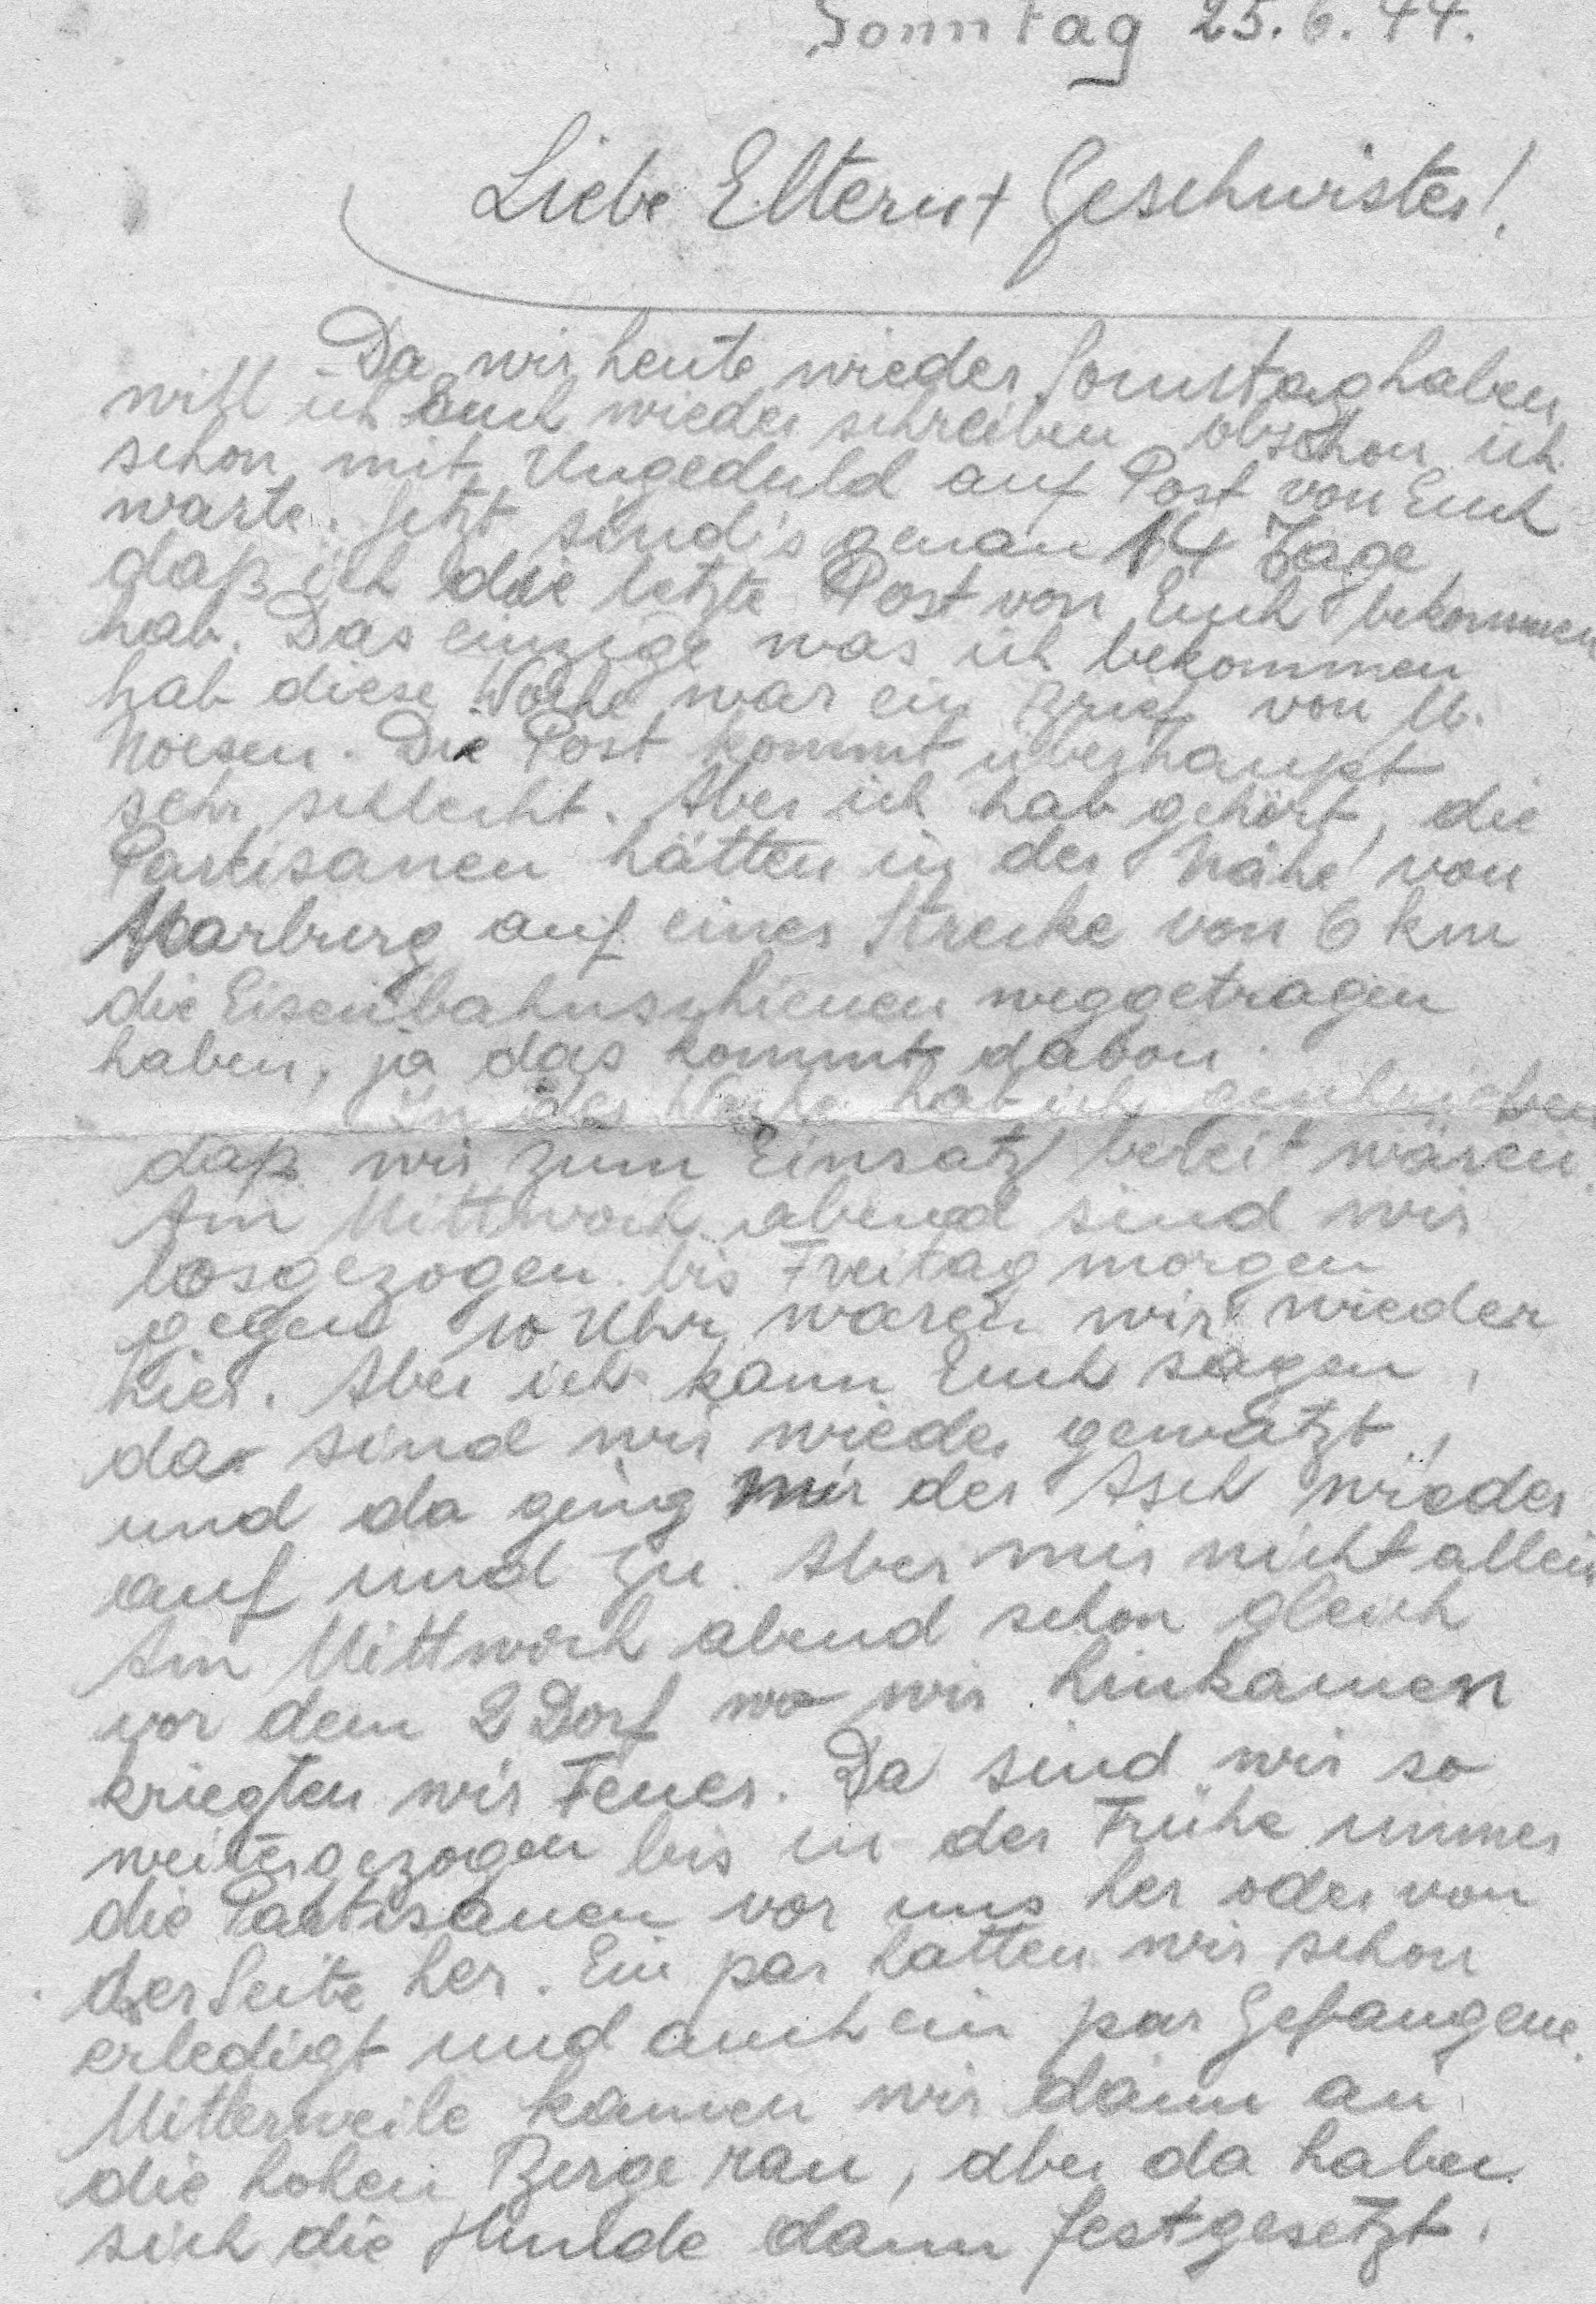 Sonntag 25.6.44.
Liebe Eltern + Geschwister!
Da wir heute wieder Sonntag haben
will ich Euch wieder schreiben obschon ich
schon mit Ungeduld auf Post von Euch
warte. Jetzt sind's genau 14 Tage
daß ich die letzte Post von Euch bekommen
hab. Das einzige was ich bekommen
hab diese Woche war ein Brief von M.
Noesen. Die Post kommt überhaupt
sehr schlecht. Aber ich hab gehört, die
Partisanen hätten in der Nähe von
Marburg auf einer Strecke von 6 km
die Eisenbahnschienen weggetragen
haben, ja das kommt davon.
In der Woche hab ich geschrieben
daß wir zum Einsatz bereit wären.
Am Mittwoch abend sind wir
losgezogen bis Freitag morgen
gegen 10 Uhr waren wir wieder
hier. Aber ich kann Euch sagen,
da sind wir wieder gewatzt,
und da ging mir der Asch wieder
auf und zu. Aber mir nicht allein
Am Mittwoch abend schon gleich
vor dem 2 Dorf wo wir hinkamen
kriegten wir Feuer. Da sind wir so
weitergezogen bis in der Frühe immer
die Partisanen vor uns her oder von
der Seite her. Ein par hatten wir schon
erledigt und auch ein par Gefangene.
Mitlerweile kamen wir dann an
die hohen Berge ran, aber da haben
sich die Hunde dann festgesetzt.